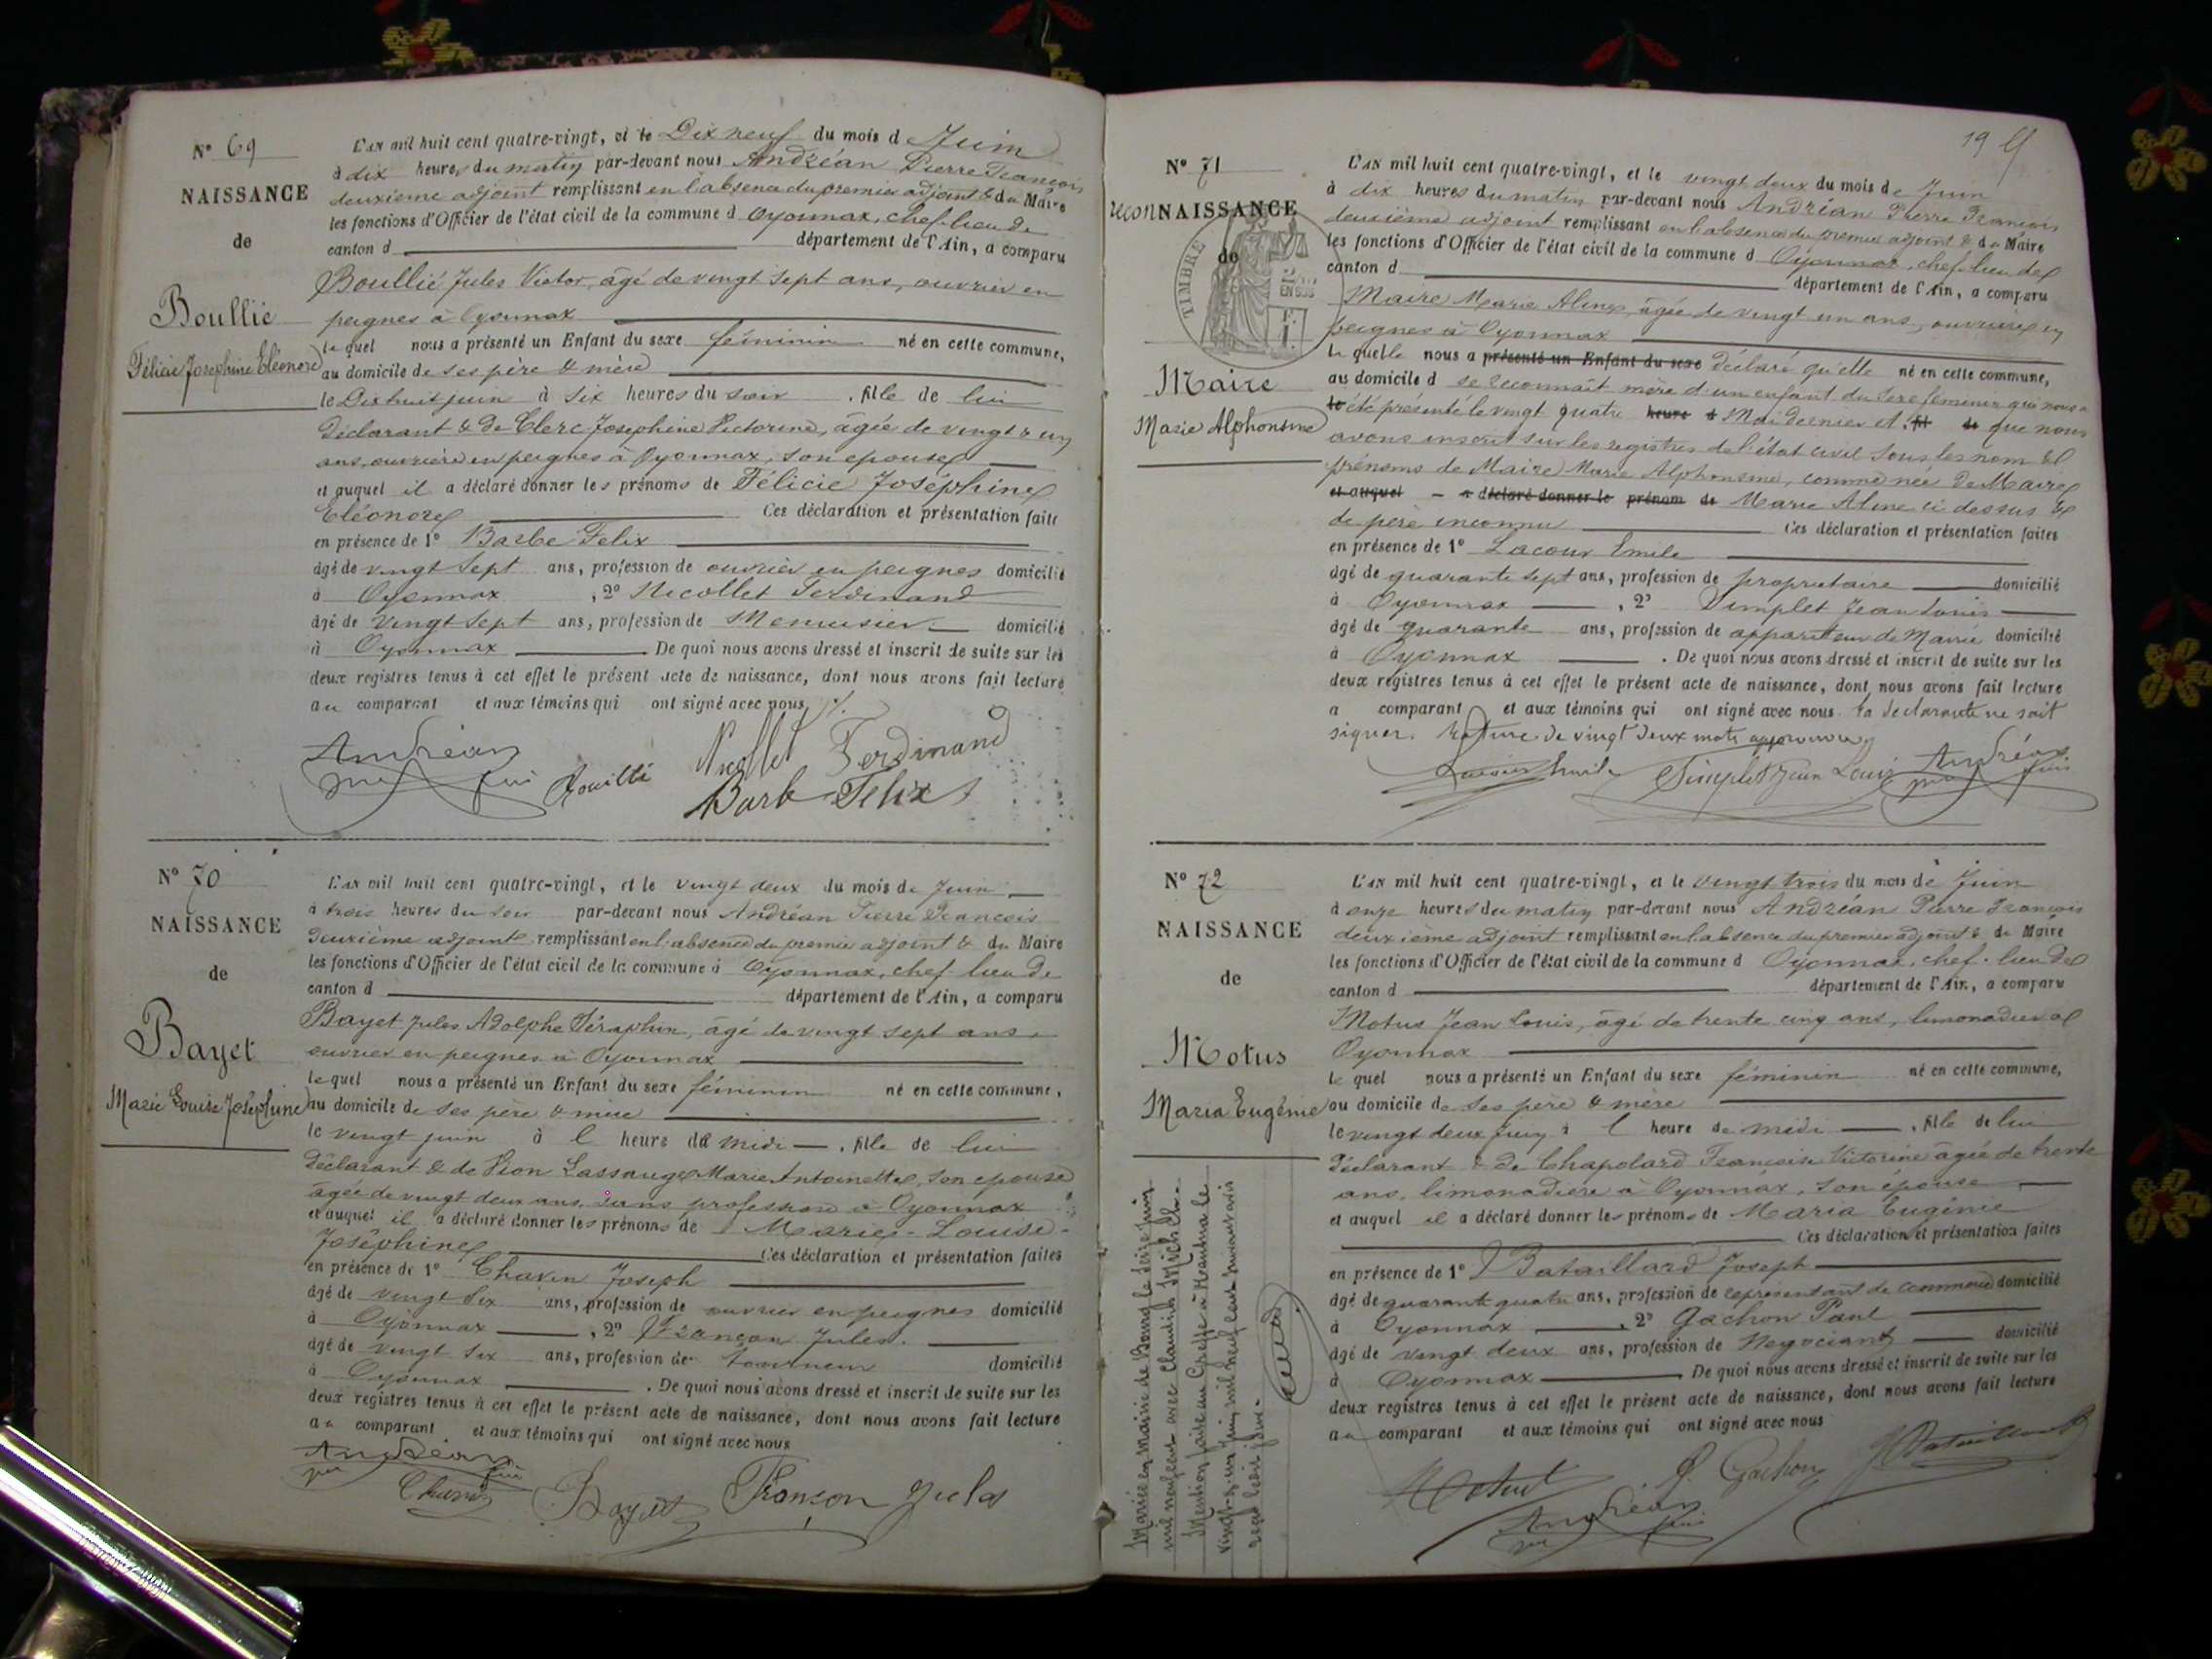 N° 69
NAISSANCE
de
Boullié
Félicie Josephine Eléonore
L'AN mil huit cent quatre-vingt, et le Dix neuf du mois d Juin
à dix heures du matin par-devant nous Andréan Pierre François
deuxième adjoint remplissant en l'absence du premier adjoint & du Maire
les fonctions d'Officier de l'état civil de la commune d Oyonnax, chef lieu de
canton d département de l'Ain, a comparu
Boullié Jules Victor, âgé de vingt sept ans, ouvrier en
peignes à Oyonnax
lequel nous a présenté un Enfant du sexe féminin né en cette commune,
au domicile de ses père & mère
le Dix huit juin à six heures du soir , fille de lui
déclarant & de Clerc Josephine Victorine, âgée de vingt & un
ans, ouvrière en peignes à Oyonnax, son epouse
et auquel il a déclaré donner les prénoms de Félicie Joséphine
Eléonore Ces déclaration et présentation faite
en présence de 1° Barbe Felix
âgé de vingt sept ans, profession de ouvrier en peignes domicilié
à Oyonnax , 2° Nicollet Ferdinand
âgé de vingt sept ans, profession de Menuisier domicilié
à Oyonnax De quoi nous avons dressé et inscrit de suite sur les
deux registres tenus à cet effet le présent acte de naissance, dont nous avons fait lecture
au comparant et aux témoins qui ont signé avec nous
Andréan Boullié Nicollet Ferdinand
Barbe Felix
N° 70
NAISSANCE
de
Bayet
Marie Louise Joséphine
L'AN mil huit cent quatre-vingt, et le vingt deux du mois de Juin
à trois heures du soir par-devant nous Andréan Pierre François
Deuxième adjoint remplissant en l'absence du premier adjoint & du Maire
les fonctions d'Officier de l'état civil de la commune d Oyonnax, chef lieu de
canton d département de l'Ain, a comparu
Bayet Jules Adolphe Séraphin, âgé de vingt sept ans
ouvrier en peignes à Oyonnax
lequel nous a présenté un Enfant du sexe féminin né en cette commune,
au domicile de ses père & mère
le vingt juin à 1 heure de midi , fille de lui
déclarant & de Lion Lassauge Marie Antoinette, son epouse
âgée de vingt deux ans, sans profession à Oyonnax
et auquel il a déclaré donner les prénoms de Marie-Louise-
Joséphine Ces déclaration et présentation faites
en présence de 1° Chavin Joseph
âgé de vingt six ans, profession de ouvrier en peignes domicilié
à Oyonnax , 2° Françon Jules.
âgé de vingt six ans, profession de tourneur domicilié
à Oyonnax . De quoi nous avons dressé et inscrit de suite sur les
deux registres tenus à cet effet le présent acte de naissance, dont nous avons fait lecture
au comparant et aux témoins qui ont signé avec nous
Andréan
Chavin Bayet Françon Jules
19
N° 71
reconNAISSANCE
de
TIMBRE
EN SUS
Maire
Marie Alphonsine
L'AN mil huit cent quatre-vingt, et le vingt deux du mois de Juin
à dix heures du matin par-devant nous Andréan Pierre François
deuxième adjoint remplissant en l'absence du premier adjoint & du Maire
les fonctions d'Officier de l'état civil de la commune d Oyonnax, chef lieu de
canton d département de l'Ain, a comparu
Maire Marie Aline, âgée de vingt un ans, ouvrière en
peignes à Oyonnax
laquelle nous a présenté un Enfant du sexe déclaré qu'elle né en cette commune,
au domicile d se reconnaît mère d'un enfant du sexe féminin qui nous a
le été présenté le vingt quatre heure à Mai dernier et fil de que nous
avons inscrit sur les registres de l'état civil sous les nom &
prénoms de Maire Marie Alphonsine, comme née de Maire
et auquel a déclaré donner le prénom de Marie Aline ci dessus &
de père inconnu Ces déclaration et présentation faites
en présence de 1° Lacour Emile
âgé de quarante sept ans, profession de propriétaire domicilié
à Oyonnax , 2° Simplet Jean Louis
âgé de quarante ans, profession de appariteur de Mairie domicilié
à Oyonnax . De quoi nous avons dressé et inscrit de suite sur les
deux registres tenus à cet effet le présent acte de naissance, dont nous avons fait lecture
a comparant et aux témoins qui ont signé avec nous. la déclarante ne sait
signer. Rature de vingt deux mots approuvée
Lacour Emile Simplet Jean Louis Andréan
N° 72
NAISSANCE
de
Motus
Maria Eugénie
Mariée en mairie de Bourg le seize juin
mil neuf cent avec Claudius Michel.
Mention faite au Greffe à Nantua le
vingt-
reçu
L'AN mil huit cent quatre-vingt, et le vingt trois du mois de Juin
à onze heures du matin par-devant nous Andréan Pierre François
deuxième adjoint remplissant en l'absence du premier adjoint & du Maire
les fonctions d'Officier de l'état civil de la commune d Oyonnax, chef-lieu de
canton d département de l'Ain, a comparu
Motus Jean Louis, âgé de trente cinq ans, limonadier à
Oyonnax
lequel nous a présenté un Enfant du sexe féminin né en cette commune,
au domicile de ses père & mère
le vingt deux Juin à 1 heure de midi , fille de lui
déclarant & de Chapolard Françoise Victorine âgée de trente
ans, limonadière à Oyonnax, son épouse
et auquel il a déclaré donner les prénoms de Maria Eugénie
Ces déclaration et présentation faites
en présence de 1° Bataillard Joseph
âgé de quarante quatre ans, profession de représentant de commerce domicilié
à Oyonnax , 2° Gachon Paul
âgé de vingt deux ans, profession de Négociant domicilié
à Oyonnax De quoi nous avons dressé et inscrit de suite sur les
deux registres tenus à cet effet le présent acte de naissance, dont nous avons fait lecture
au comparant et aux témoins qui ont signé avec nous
Motus P. Gachon J Bataillard
Andréan